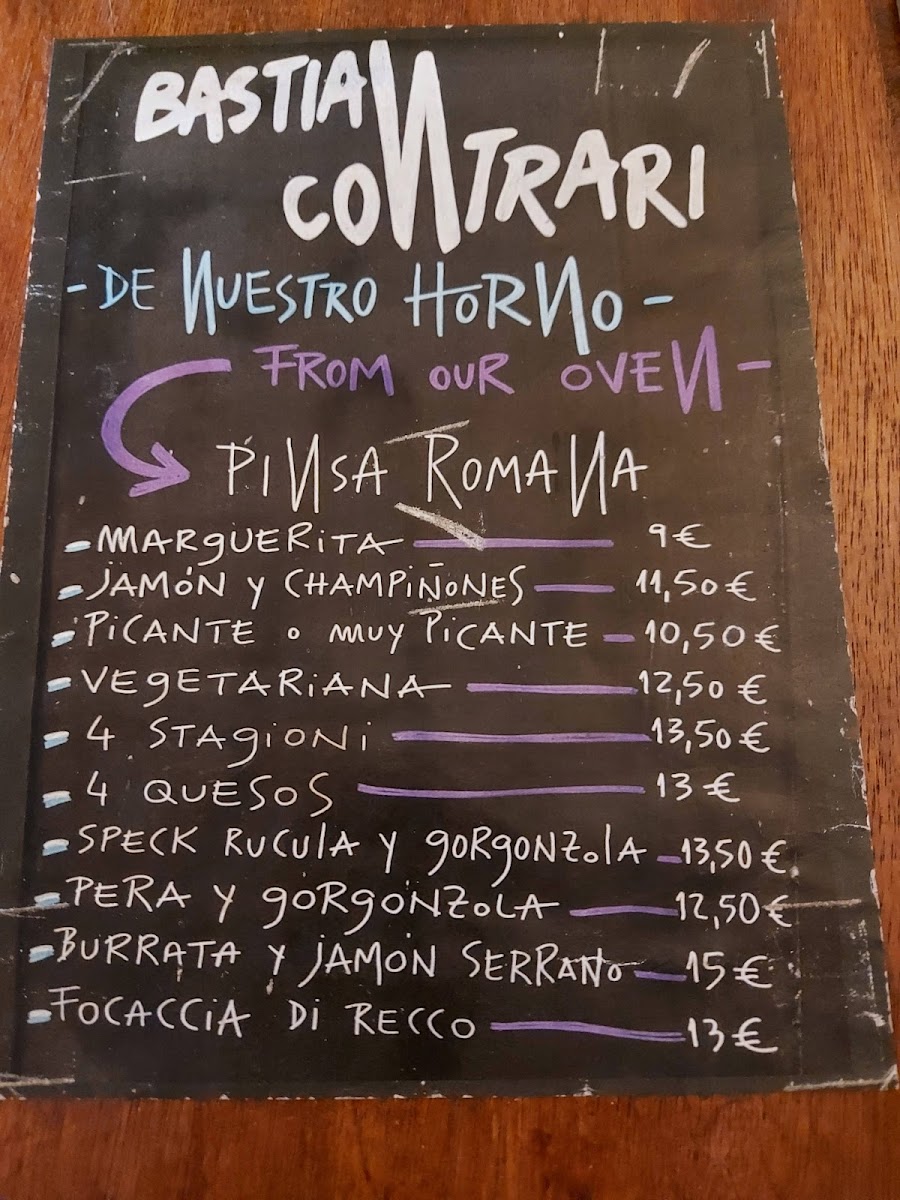 BASTIAN
CONTRARI
- DE NUESTRO HORNO -
FROM OUR OVEN -
PINSA ROMANA
- MARGUERITA — 9€
- JAMÓN y CHAMPIÑONES — 11,50€
- PICANTE o MUY PICANTE — 10,50€
- VEGETARIANA — 12,50€
- 4 STAGIONI — 13,50€
- 4 QUESOS — 13€
- SPECK RUCULA Y GORGONZOLA — 13,50€
- PERA Y GORGONZOLA — 12,50€
- BURRATA y JAMON SERRANO — 15€
- FOCACCIA DI RECCO — 13€